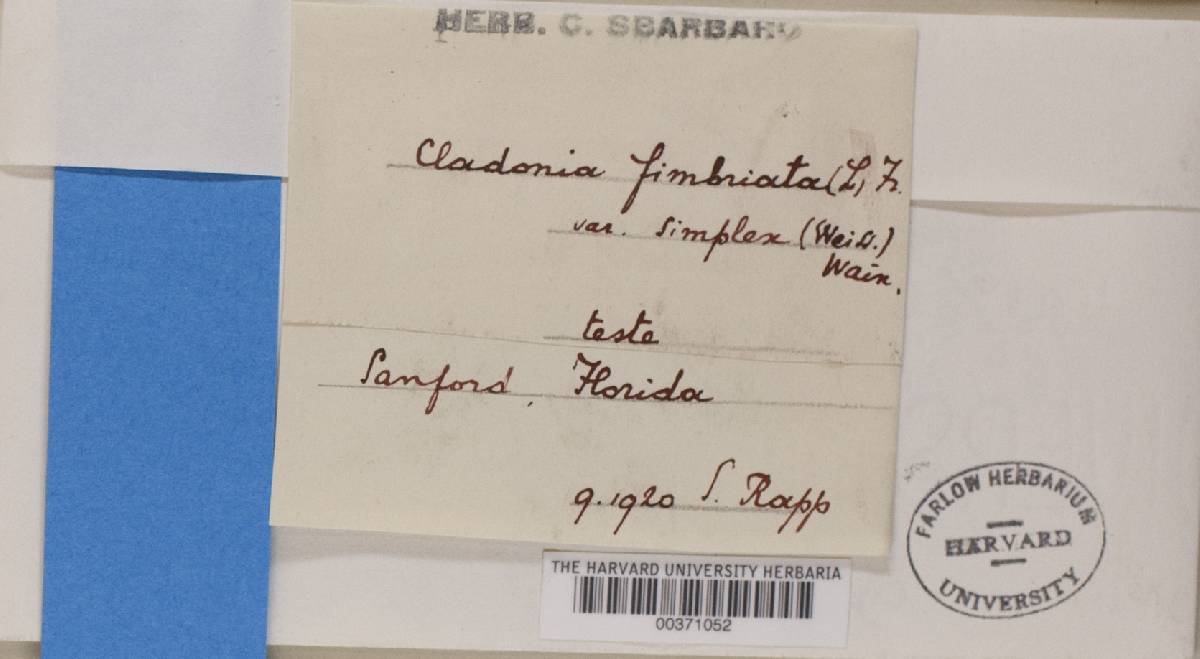 HERB. C. SBARBARO
Cladonia fimbriata (L) Fr.
var. simplex (Weis.)
Wain.
teste
Sanford, Florida
9.1920 S. Rapp
THE HARVARD UNIVERSITY HERBARIA
00371052
FARLOW HERBARIUM
HARVARD
UNIVERSITY